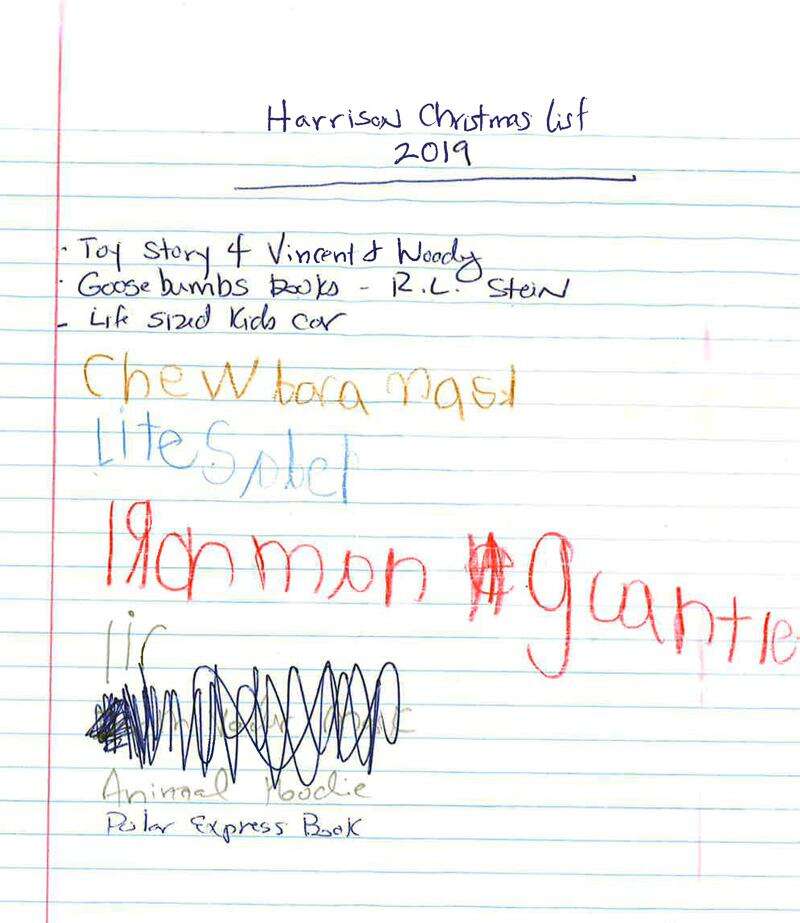 Harrison Christmas list
2019
· Toy Story 4 Vincent & Woody
· Goosebumbs books - R.L. Stein
- Life sized Kids car
Chewbaca mask
Lite Saber
Iron mon gantle
Animal Hoodie
Polar Express Book